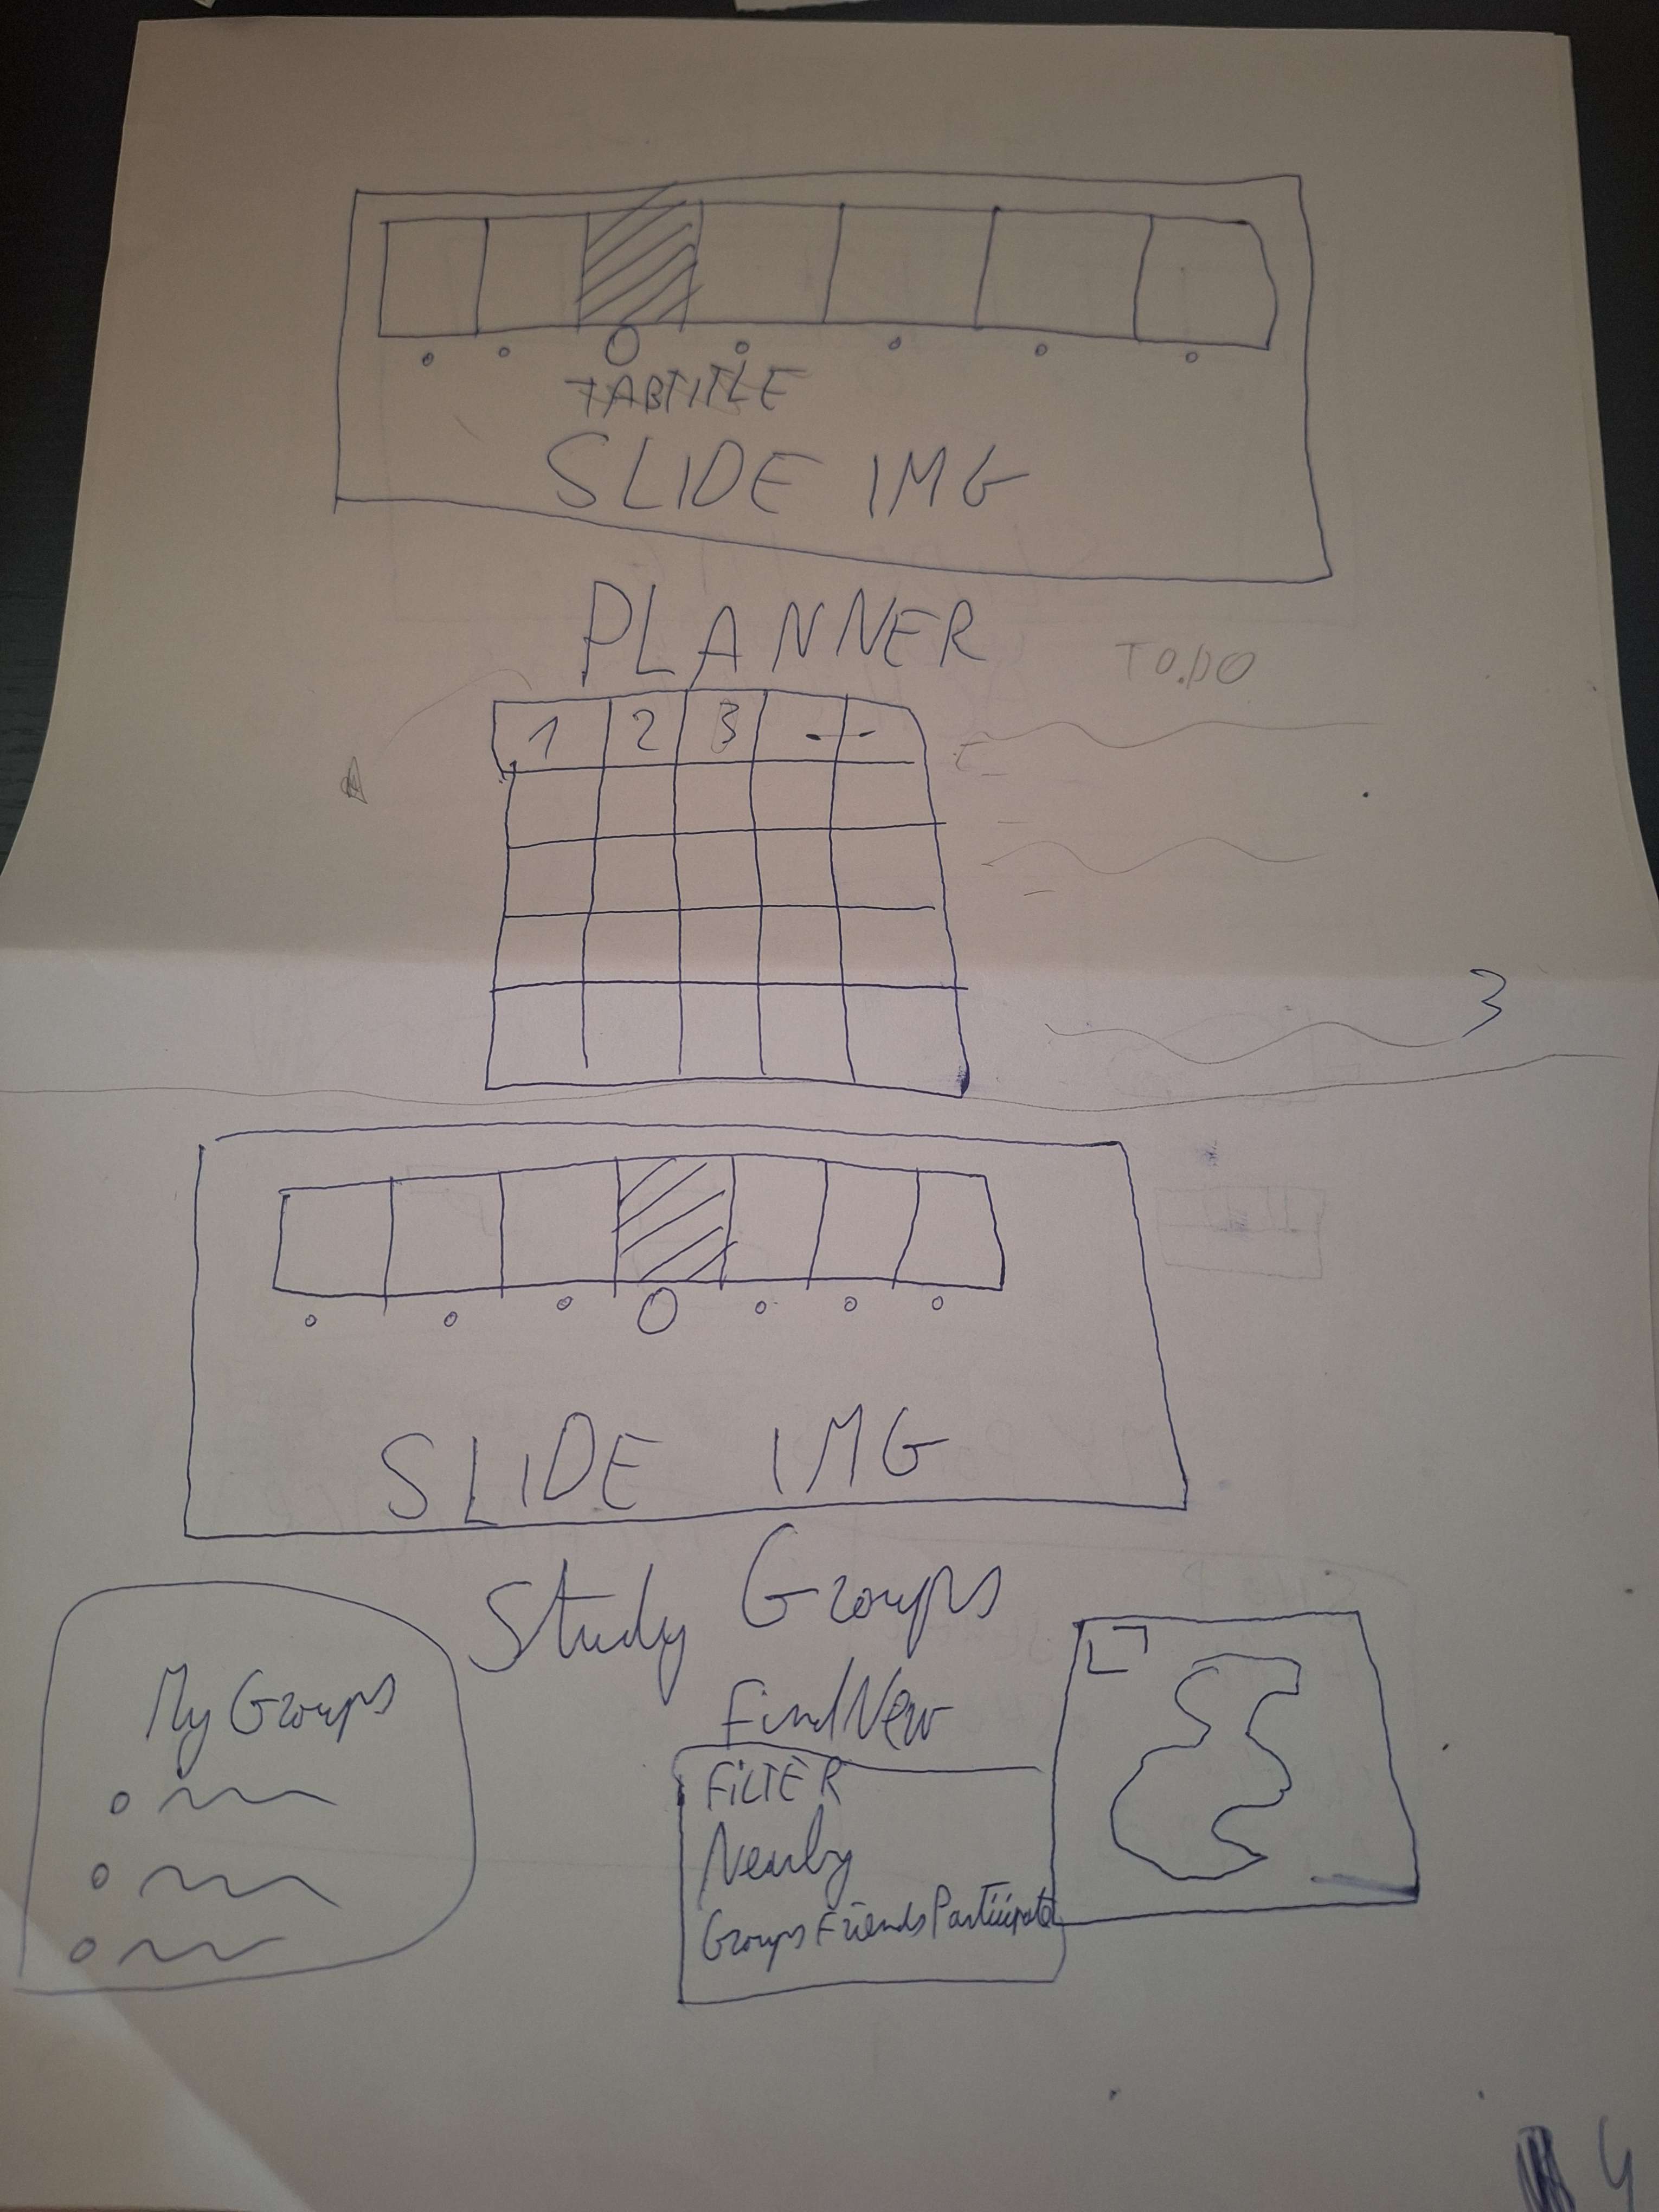 TABTITLE
SLIDE IMG
PLANNER
TO.DO
1 2 3
3
SLIDE IMG
Study Groups
My Groups
Find New
FILTER
Nearby
Groups Friends Participate
4